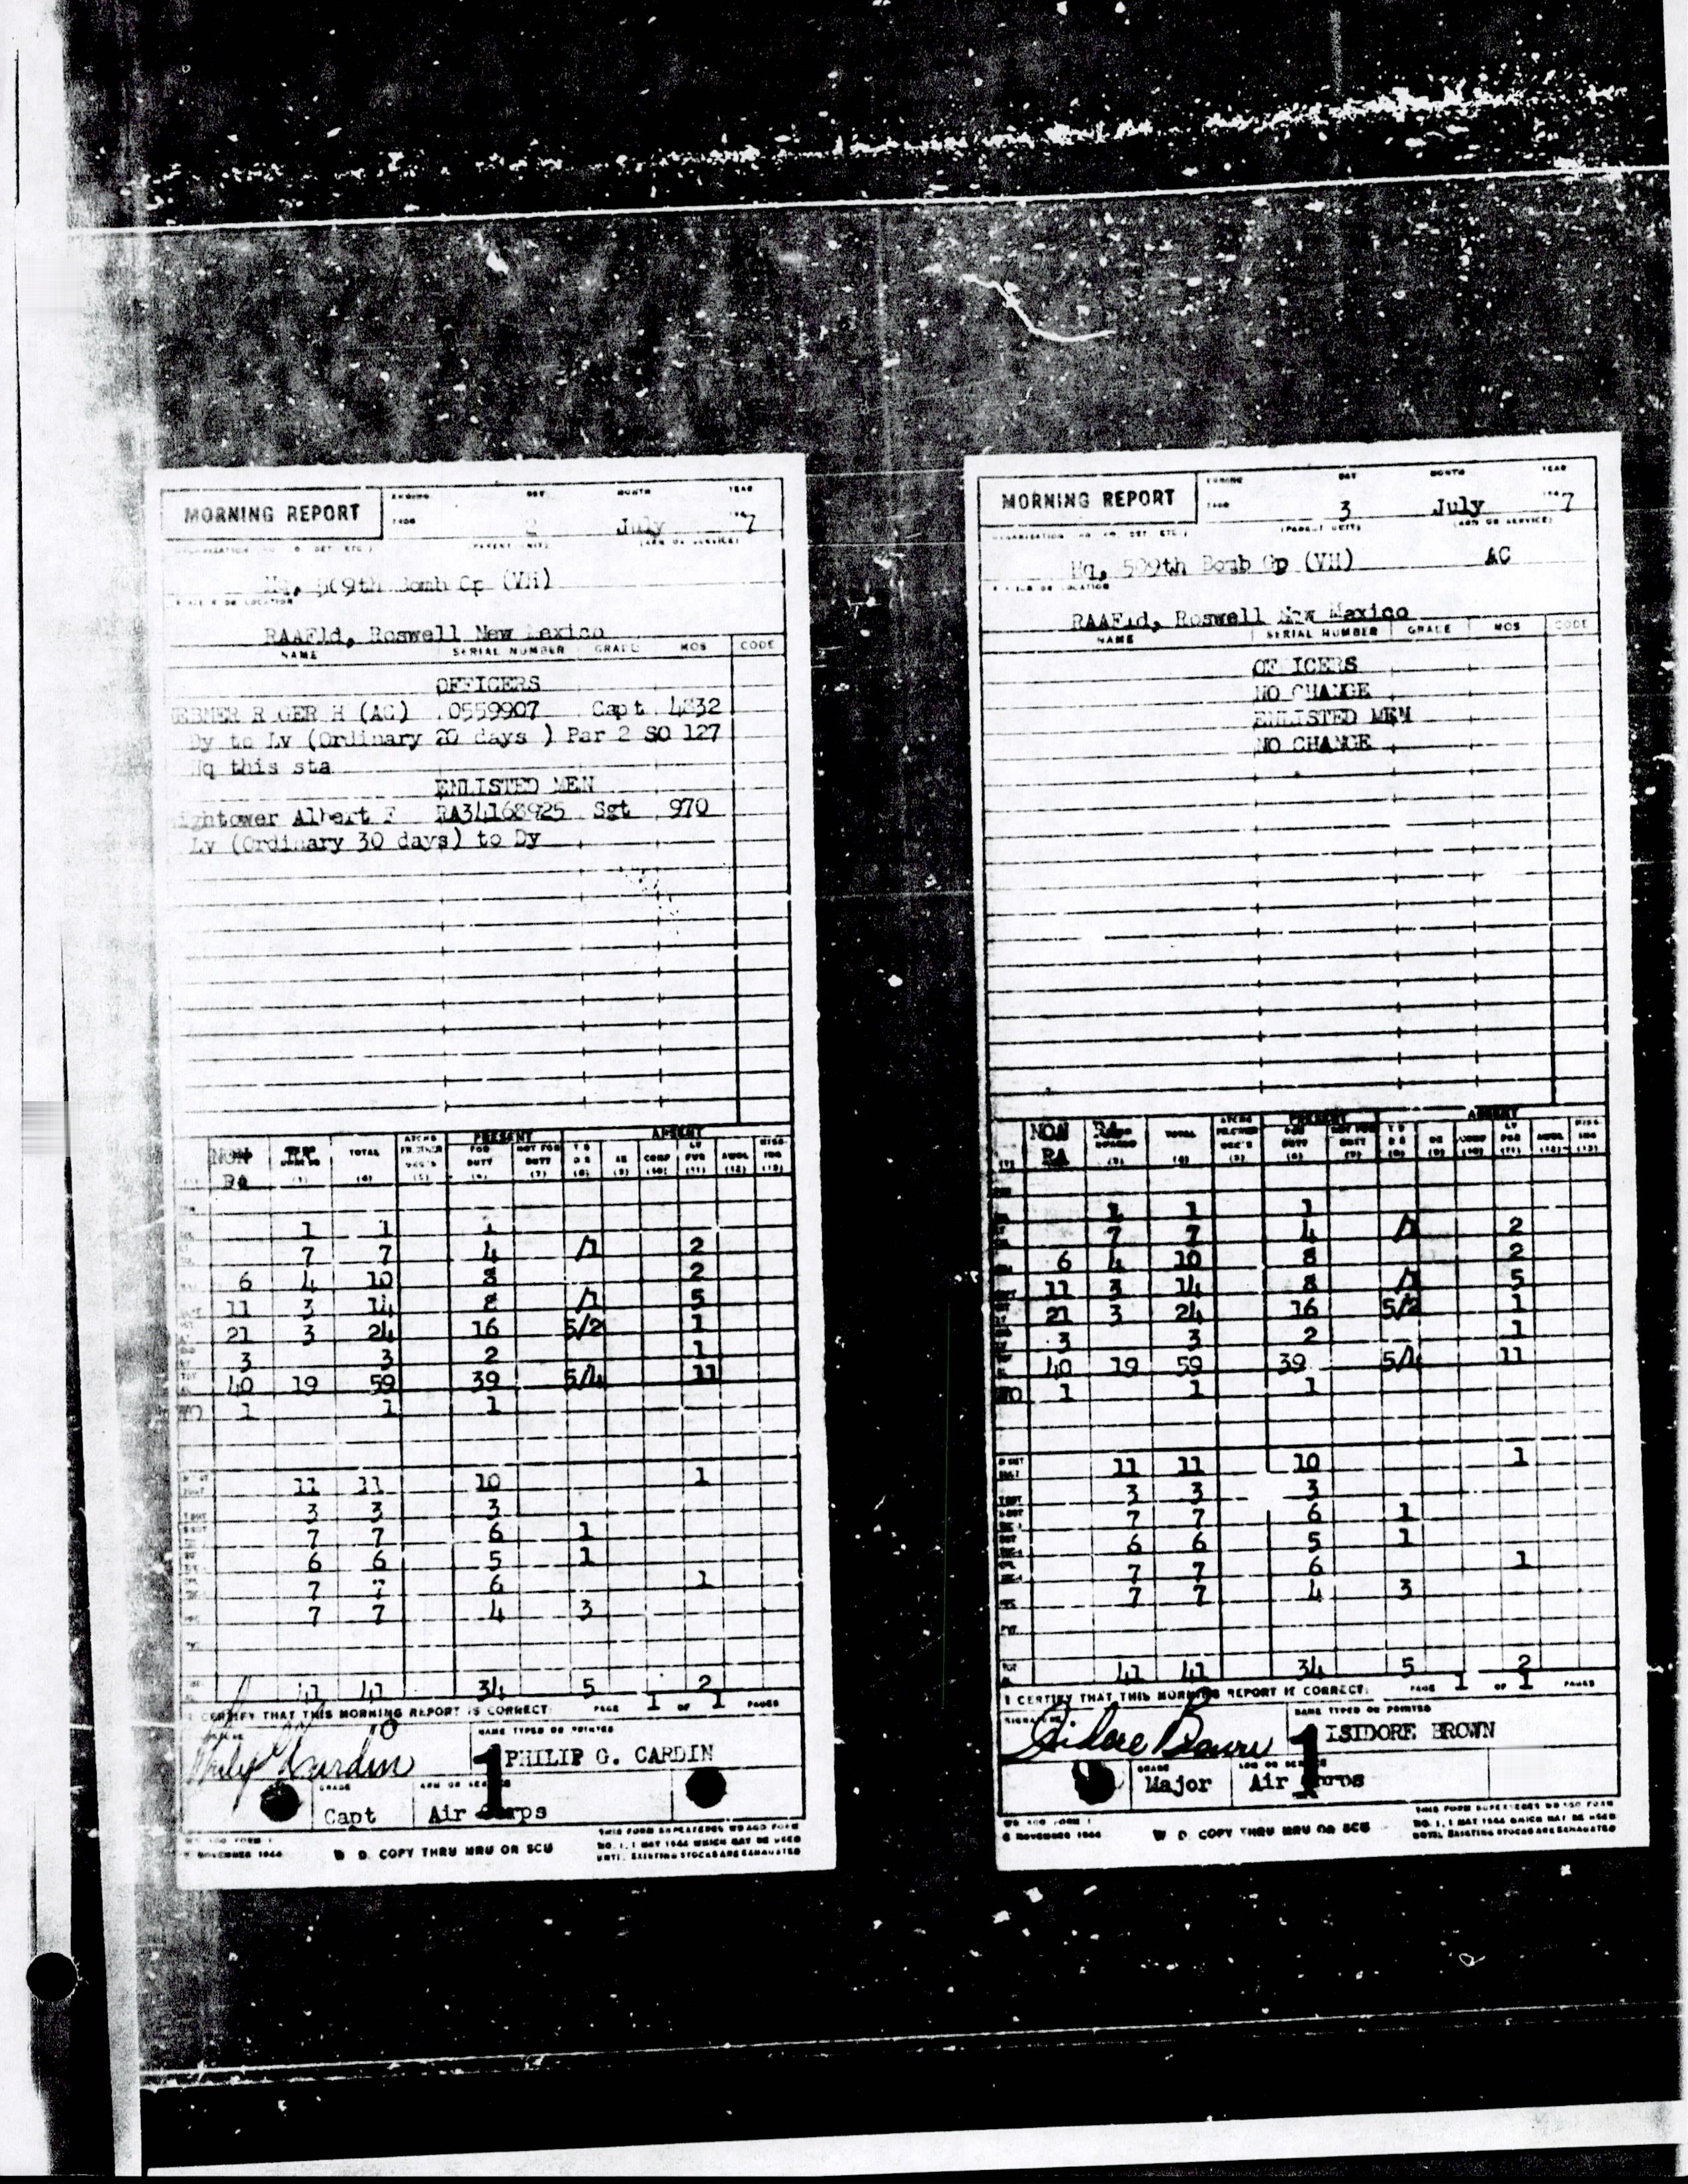 MORNING REPORT
ENDING DAY MONTH YEAR
2400 2 July 1947
(PARENT UNIT) (ARM OR SERVICE)
Hq, 509th Bomb Gp (VH)
RAAFld, Roswell New Mexico
NAME SERIAL NUMBER GRADE MOS CODE
OFFICERS
R GER H (AC) 0559907 Capt 4832
Dy to Lv (Ordinary 20 days ) Par 2 SO 127
Hq this sta
ENLISTED MEN
ightower Albert F RA34168925 Sgt 970
Lv (Ordinary 30 days) to Dy
PRESENT ABSENT
NON TOTAL FOR DUTY NOT FOR DUTY
RA
1 1 1
7 7 4 /1 2
6 4 10 8 2
11 3 14 8 /1 5
21 3 24 16 5/2 1
3 3 2 1
40 19 59 39 5/4 11
WO 1 1 1
11 11 10 1
3 3 3
7 7 6 1
6 6 5 1
7 7 6 1
7 7 4 3
41 41 34 5 2
I CERTIFY THAT THIS MORNING REPORT IS CORRECT. PAGE 1 OF 1 PAGES
NAME TYPED OR PRINTED
Philip G Cardin 1 PHILIP G. CARDIN
GRADE ARM OR SERVICE
Capt Air Corps
WD AGO FORM 1
NOVEMBER 1944
W D COPY THRU MRU OR SCU
THIS FORM SUPERSEDES WD AGO FORM
NO. 1, 1 MAY 1944 WHICH MAY BE USED
UNTIL EXISTING STOCKS ARE EXHAUSTED
MORNING REPORT
ENDING DAY MONTH YEAR
2400 3 July 1947
(PARENT UNIT) (ARM OR SERVICE)
Hq, 509th Bomb Gp (VH) AC
RAAFld, Roswell New Maxico
NAME SERIAL NUMBER GRADE MOS CODE
OF ICERS
NO CHANGE
ENLISTED MEN
NO CHANGE
PRESENT ABSENT
NON RA TOTAL FOR DUTY NOT FOR DUTY
RA
1 1 1
7 7 4 /1 2
6 4 10 8 2
11 3 14 8 /1 5
21 3 24 16 5/2 1
3 3 2 1
40 19 59 39 5/4 11
WO 1 1 1
11 11 10 1
3 3 3
7 7 6 1
6 6 5 1
7 7 6 1
7 7 4 3
41 41 34 5 2
I CERTIFY THAT THIS MORNING REPORT IS CORRECT. PAGE 1 OF 1 PAGES
SIGNATURE NAME TYPED OR PRINTED
Isidore Brown 1 ISIDORE BROWN
GRADE ARM OR SERVICE
Major Air Corps
WD AGO FORM 1
6 NOVEMBER 1944
W D COPY THRU MRU OR SCU
THIS FORM SUPERSEDES WD AGO FORM
NO. 1, 1 MAY 1944 WHICH MAY BE USED
UNTIL EXISTING STOCKS ARE EXHAUSTED